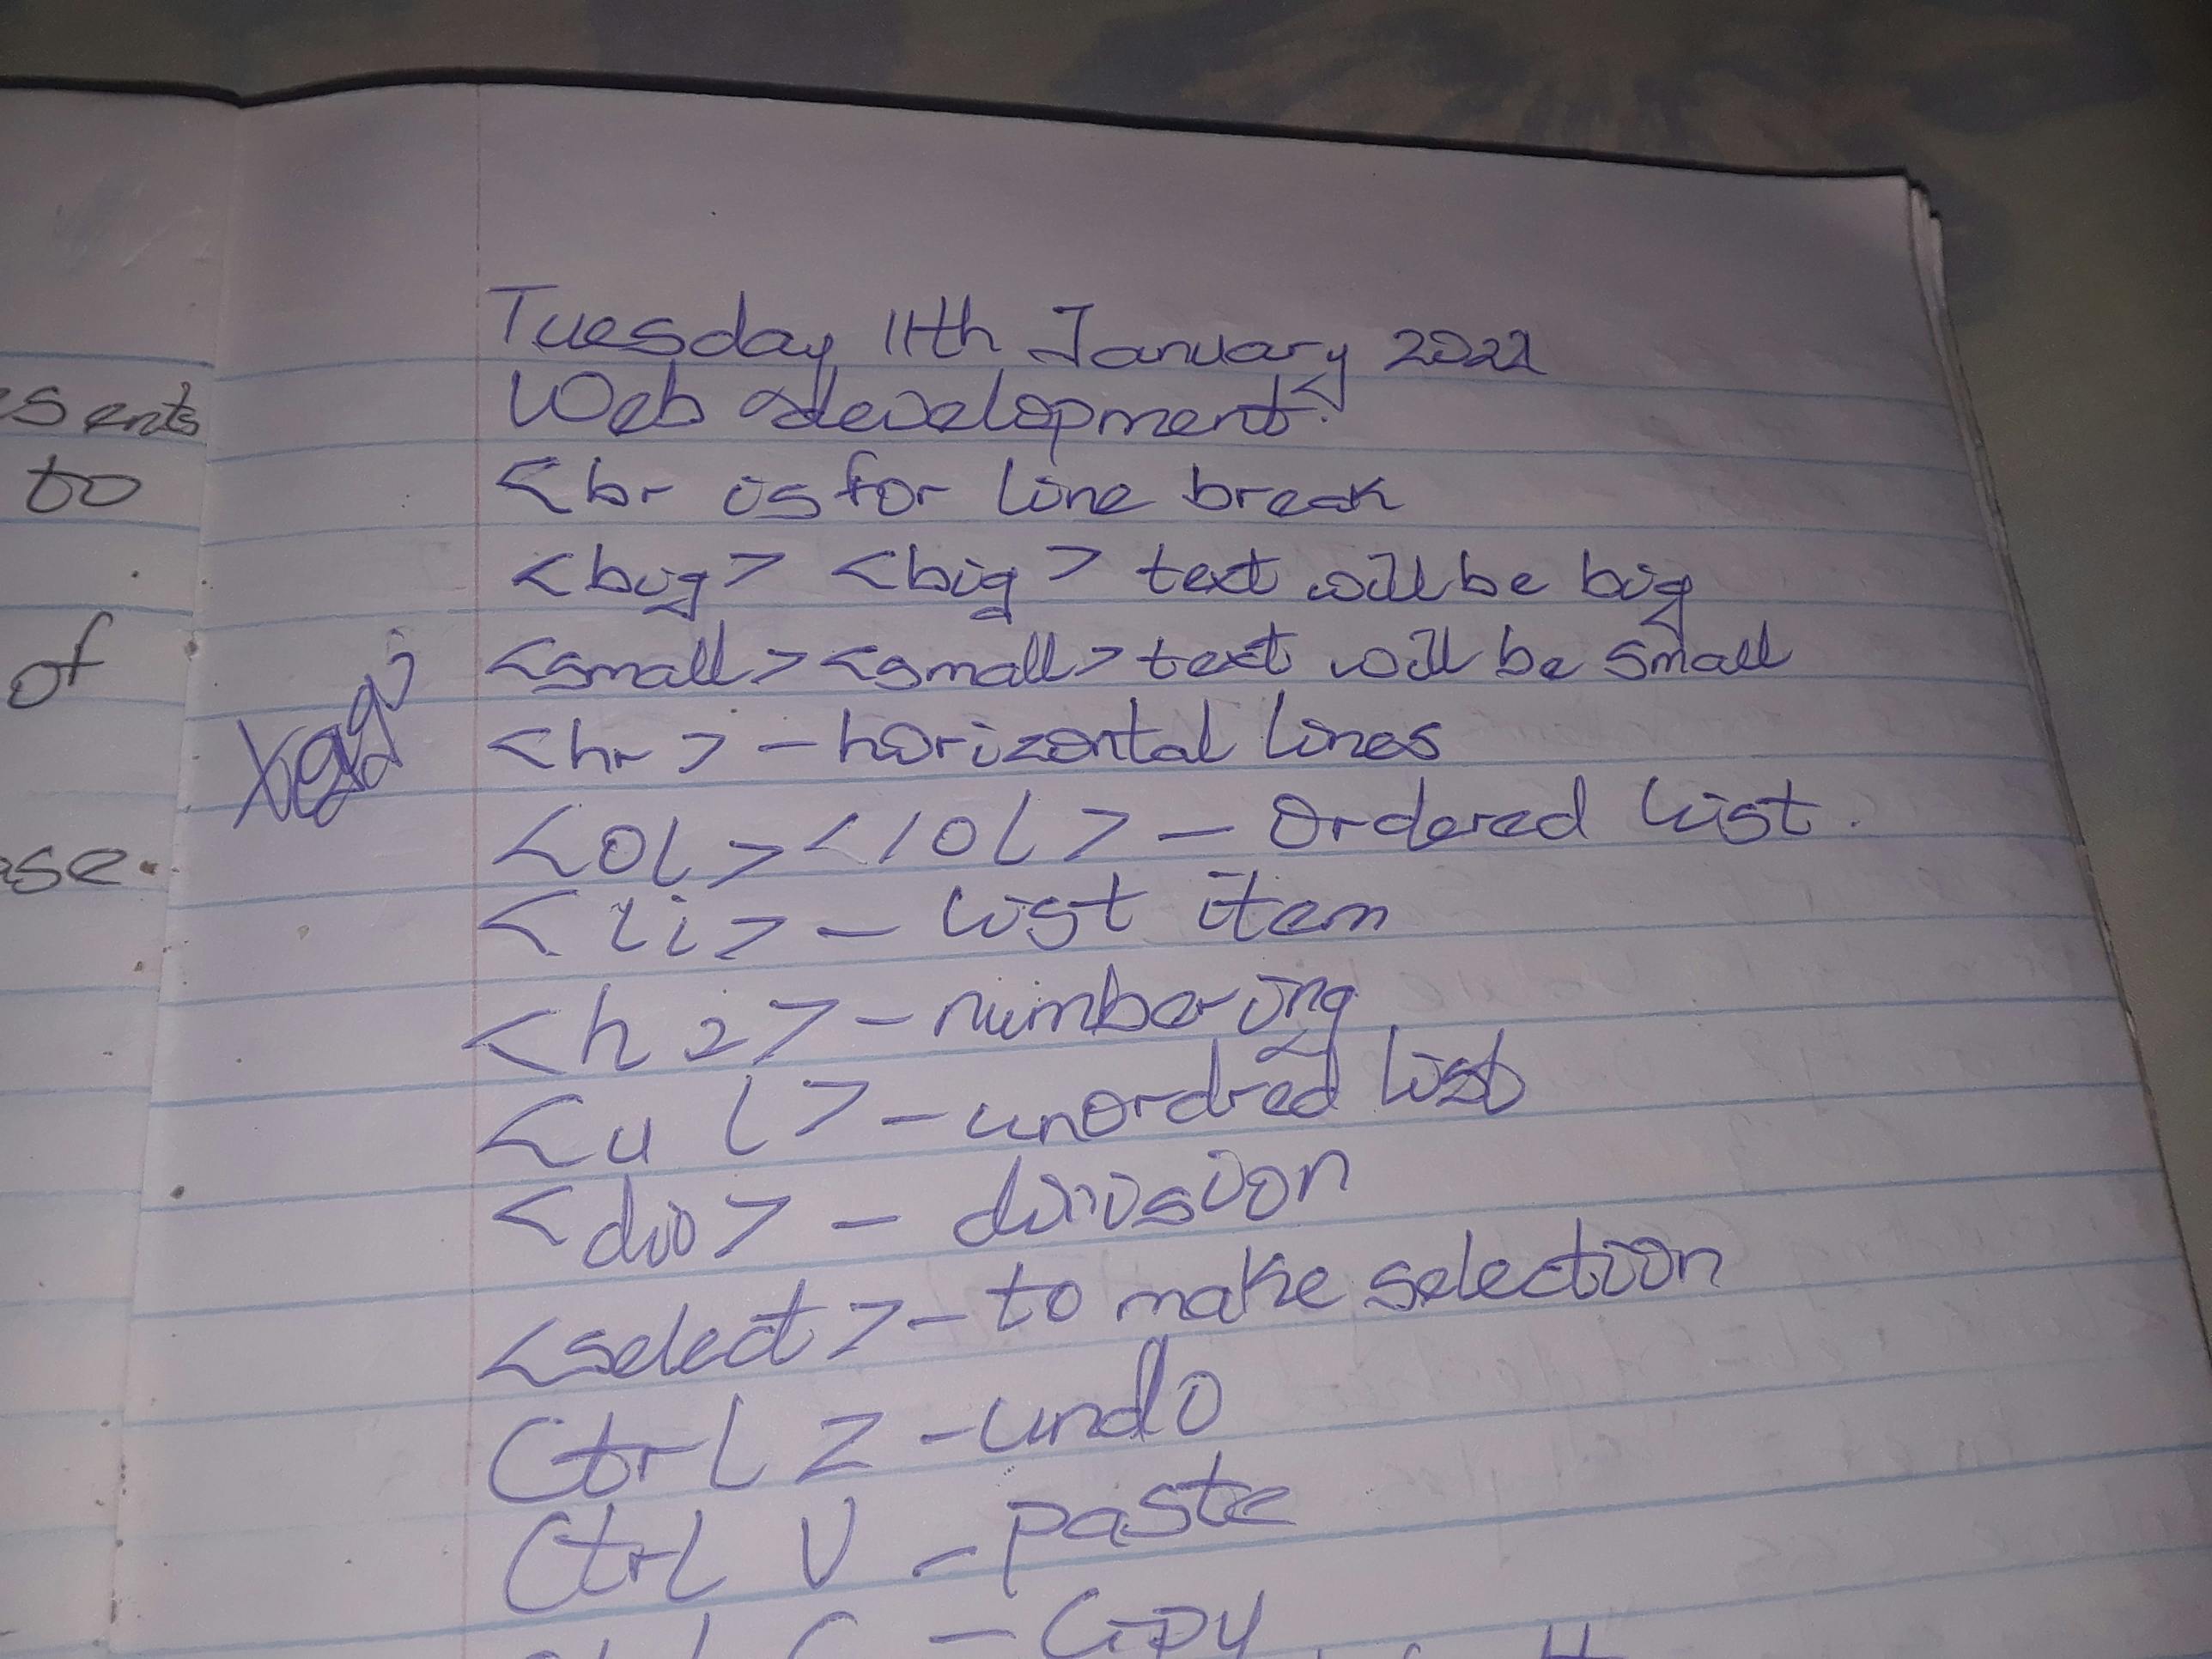 sents
to
of
se.
Tuesday 11th January 2022
Web development.
<br is for line break
<big> <big> text will be big
<small> <small> text will be small
<hr> - horizontal lines
<ol> </ol> - Ordered list.
<li> - list item
<h2> - numbering
<ul> - unordred list
<div> - division
<select> - to make selection
Ctrl Z - undo
Ctrl V - paste
Ctrl C - Copy